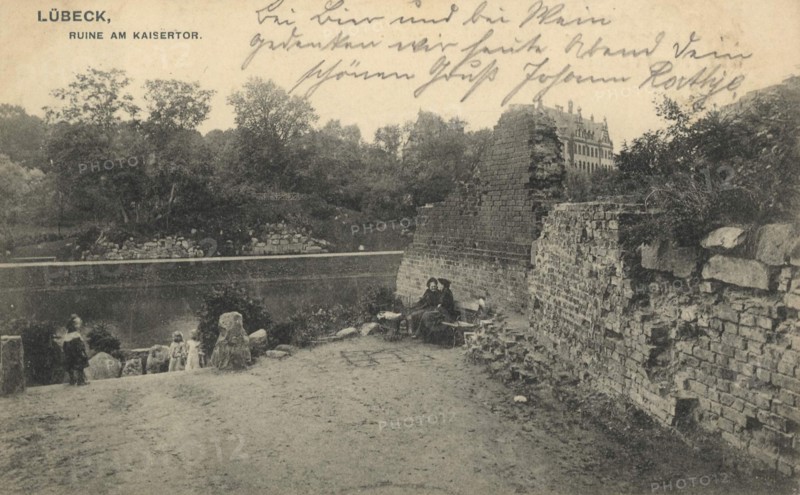 LÜBECK,
RUINE AM KAISERTOR.
bei Bier und bei Wein
gedenken wir heute Abend Dein
schönen Gruß Johann
PHOTO12
PHOTO12
PHOTO12
PHOTO12
PHOTO12
PHOTO12
PHOTO12
PHOTO12